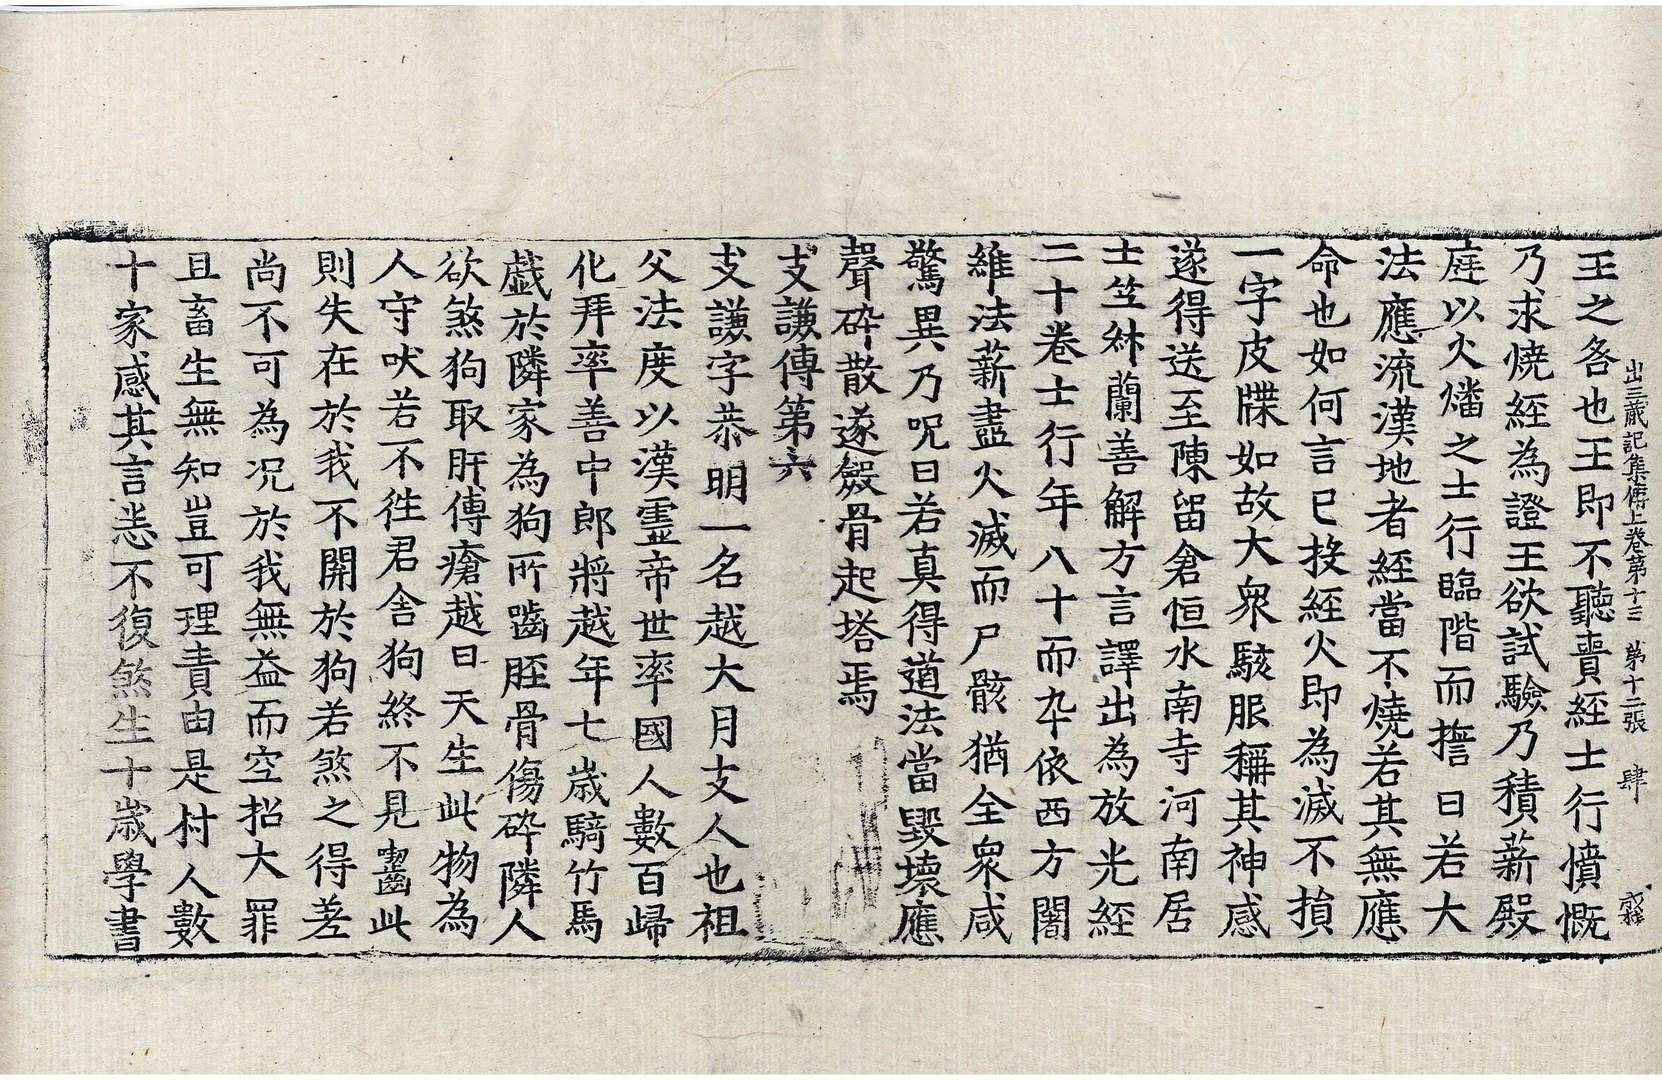 出三藏記集傳上卷第十三 第十二張 肆
王之咎也王即不聽賷經士行憤慨
乃求燒經為證王欲試驗乃積薪殿
庭以火燔之士行臨階而擔曰若大
法應流漢地者經當不燒若其無應
命也如何言已投經火即為滅不損
一字皮牒如故大衆駭服稱其神感
遂得送至陳留倉恒水南寺河南居
士笠𣏌蘭善解方言譯出為放光經
二十卷士行年八十而卒依西方闍
維法薪盡火滅而尸骸猶全衆咸
驚異乃呪曰若真得道法當毀壞應
聲碎散遂斂骨起塔焉
支謙傳第六
支謙字恭明一名越大月支人也祖
父法度以漢靈帝世率國人數百歸
化拜率善中郎將越年七歲騎竹馬
戱於隣家為狗所齧脛骨傷碎隣人
欲煞狗取肝傅瘡越曰天生此物為
人守吠若不徃君舍狗終不見齧此
則失在於我不開於狗若煞之得差
尚不可為况於我無益而空招大罪
且畜生無知豈可理責由是村人數
十家感其言悉不復煞生十歲學書